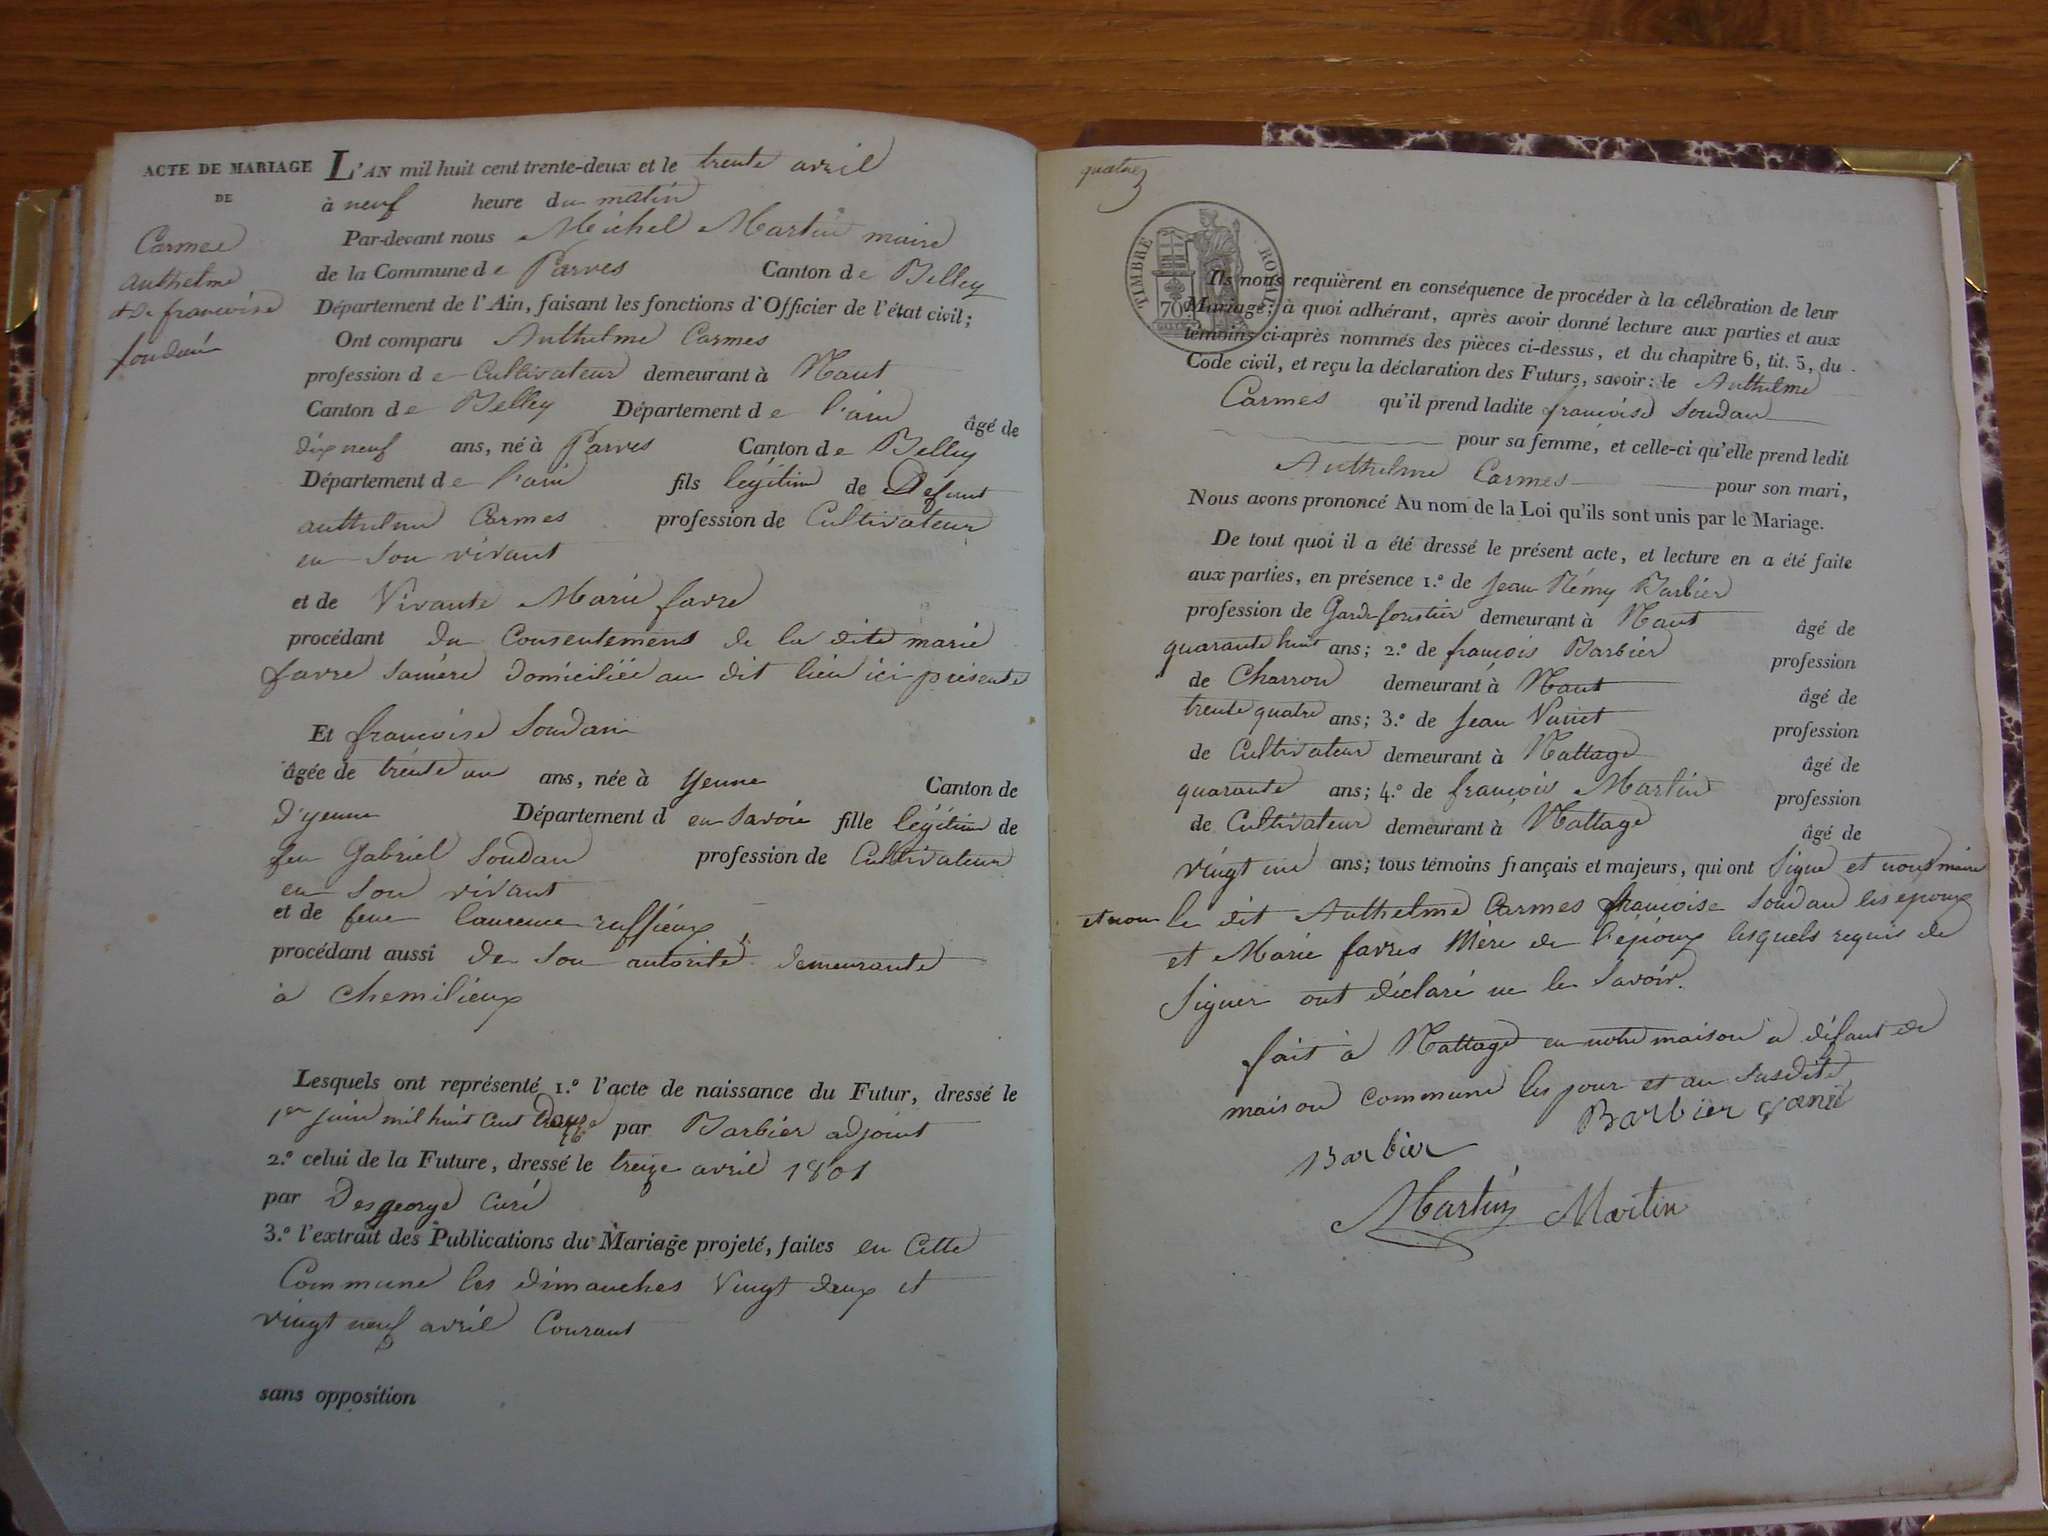 ACTE DE MARIAGE
DE
Carmes
Anthelme
et de françoise
soudan
L'AN mil huit cent trente-deux et le trente avril
à neuf heure du matin
Par-devant nous Michel Martin maire
de la Commune de Parves Canton de Belley
Département de l'Ain, faisant les fonctions d'Officier de l'état civil;
Ont comparu Anthelme Carmes
profession de Cultivateur demeurant à Nant
Canton de Belley Département de l'ain âgé de
dix neuf ans, né à Parves Canton de Belley
Département de l'ain fils légitime de Defunt
anthelme Carmes profession de Cultivateur
en son vivant
et de Vivante Marie favre
procédant du Consentement de la dite marie
favre sa mère domiciliée au dit lieu ici présente
Et françoise Soudan
âgée de trente un ans, née à yenne Canton de
D'yenne Département d en Savoie fille légitime de
feu Gabriel Soudan profession de Cultivateur
en son vivant
et de feue laurence ruffieux
procédant aussi de son autorité demeurante
à Chemilieux
Lesquels ont représenté 1.° l'acte de naissance du Futur, dressé le
1er juin mil huit cent par Barbier adjoint
2.° celui de la Future, dressé le treize avril 1801
par Desgeorge Curé
3.° l'extrait des Publications du Mariage projeté, faites en Cette
Commune les dimanches Vingt deux et
vingt neuf avril Courant
sans opposition
quatre
TIMBRE ROYAL
70
Ils nous requièrent en conséquence de procéder à la célébration de leur
Mariage; à quoi adhérant, après avoir donné lecture aux parties et aux
témoins ci-après nommés des pièces ci-dessus, et du chapitre 6, tit. 5, du
Code civil, et reçu la déclaration des Futurs, savoir: le Anthelme
Carmes qu'il prend ladite françoise Soudan
pour sa femme, et celle-ci qu'elle prend ledit
Anthelme Carmes pour son mari,
Nous avons prononcé Au nom de la Loi qu'ils sont unis par le Mariage.
De tout quoi il a été dressé le présent acte, et lecture en a été faite
aux parties, en présence 1.° de Jean Rémy Barbier
profession de Garde forestier demeurant à Nant âgé de
quarante huit ans; 2.° de françois Barbier profession
de Charron demeurant à Nant âgé de
trente quatre ans; 3.° de Jean profession
de Cultivateur demeurant à Nattage âgé de
quarante ans; 4.° de françois Martin profession
de Cultivateur demeurant à Nattage âgé de
vingt un ans; tous témoins français et majeurs, qui ont Signé et nous maire
et non le dit Anthelme Carmes françoise Soudan les époux
et Marie favres Mère de l'époux lesquels requis de
Signer ont déclaré ne le Savoir.
fait à Nattage en notre maison a défaut de
maison commune les jour et an Susdits
Barbier
Barbier
Martin Martin